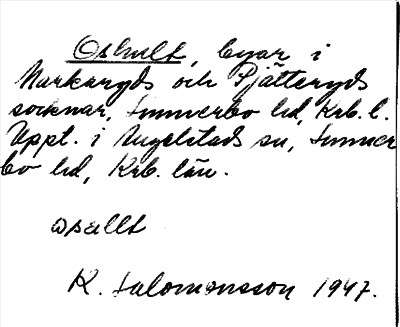 Oshult, byar i
Markaryds och Pjätteryds
socknar, Sunnerbo hd, Krb. l.
Uppt. i Angelstads sn, Sunner
bo hd, Krb. län.
osallt
K. Salomonsson 1947.